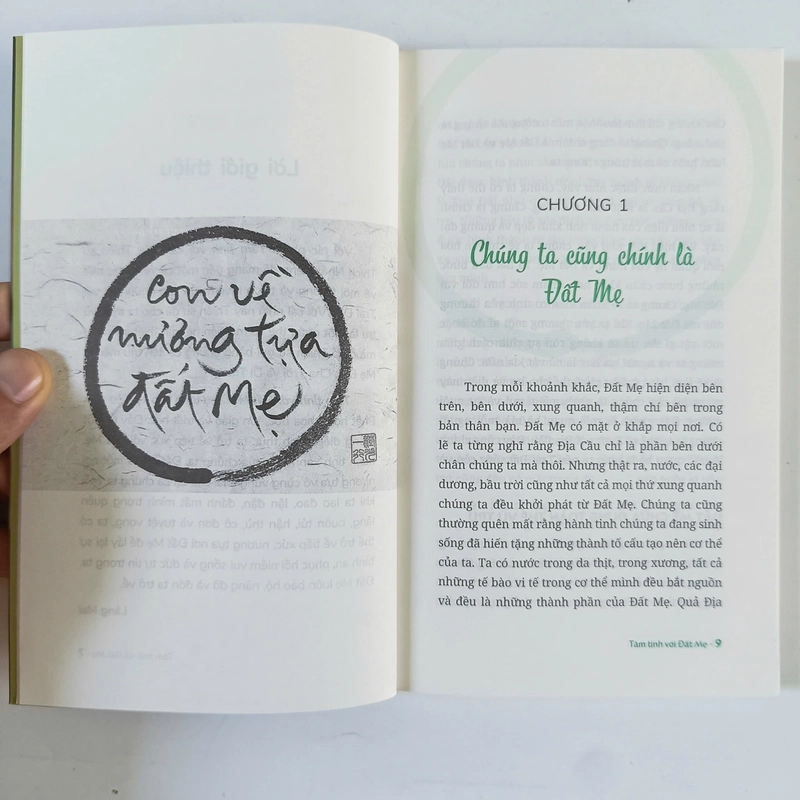 con về
nương tựa
đất Mẹ
CHƯƠNG 1
Chúng ta cũng chính là
Đất Mẹ
Trong mỗi khoảnh khắc, Đất Mẹ hiện diện bên
trên, bên dưới, xung quanh, thậm chí bên trong
bản thân bạn. Đất Mẹ có mặt ở khắp mọi nơi. Có
lẽ ta từng nghĩ rằng Địa Cầu chỉ là phần bên dưới
chân chúng ta mà thôi. Nhưng thật ra, nước, các đại
dương, bầu trời cũng như tất cả mọi thứ xung quanh
chúng ta đều khởi phát từ Đất Mẹ. Chúng ta cũng
thường quên mất rằng hành tinh chúng ta đang sinh
sống đã hiến tặng những thành tố cấu tạo nên cơ thể
của ta. Ta có nước trong da thịt, trong xương, tất cả
những tế bào vi tế trong cơ thể mình đều bắt nguồn
và đều là những thành phần của Đất Mẹ. Quả Địa
Tâm tình với Đất Mẹ - 9